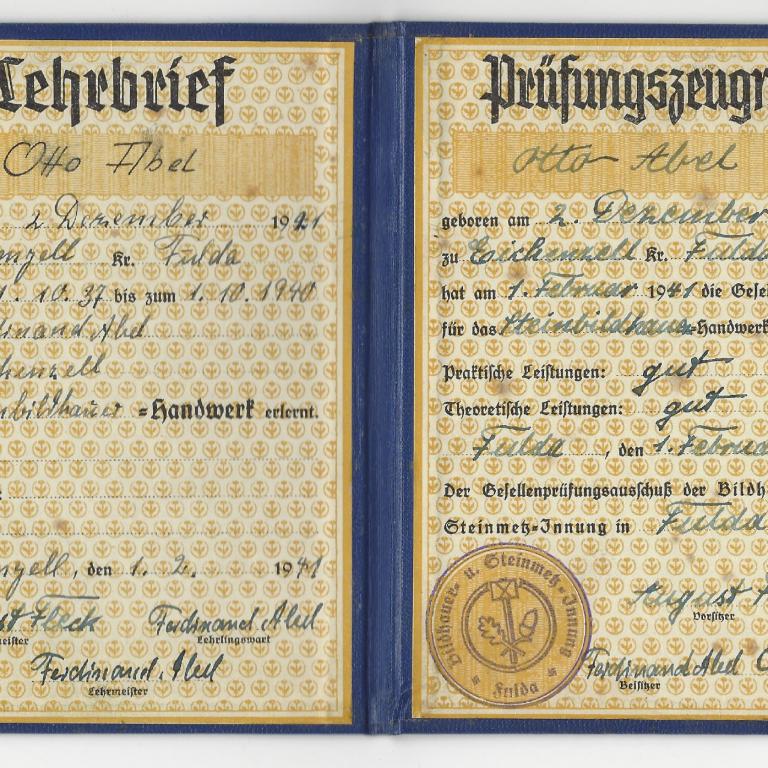 Lehrbrief
Otto Abel
2 Dezember 1921
enzell Kr. Fulda
1. 10. 37 bis zum 1. 10. 1940
dinand Abel
henzell
nbildhauer =Handwerk erlernt.
enzell, den 1. 2. 1941
st Fleck Ferdinand Abel
meister Lehrlingswart
Ferdinand Abel
Lehrmeister
Prüfungszeugn
Otto Abel
geboren am 2. Dezember
zu Eichenzell Kr. Fulda
hat am 1. Februar 1941 die Gesel
für das Steinbildhauer=Handwerk
Praktische Leistungen: gut
Theoretische Leistungen: gut
Fulda, den 1. Februa
Der Gesellenprüfungsausschuß der Bildh
Steinmetz-Innung in Fulda
August
Vorsitzer
Ferdinand Abel
Beisitzer
Bildhauer- u. Steinmetz-Innung
Fulda